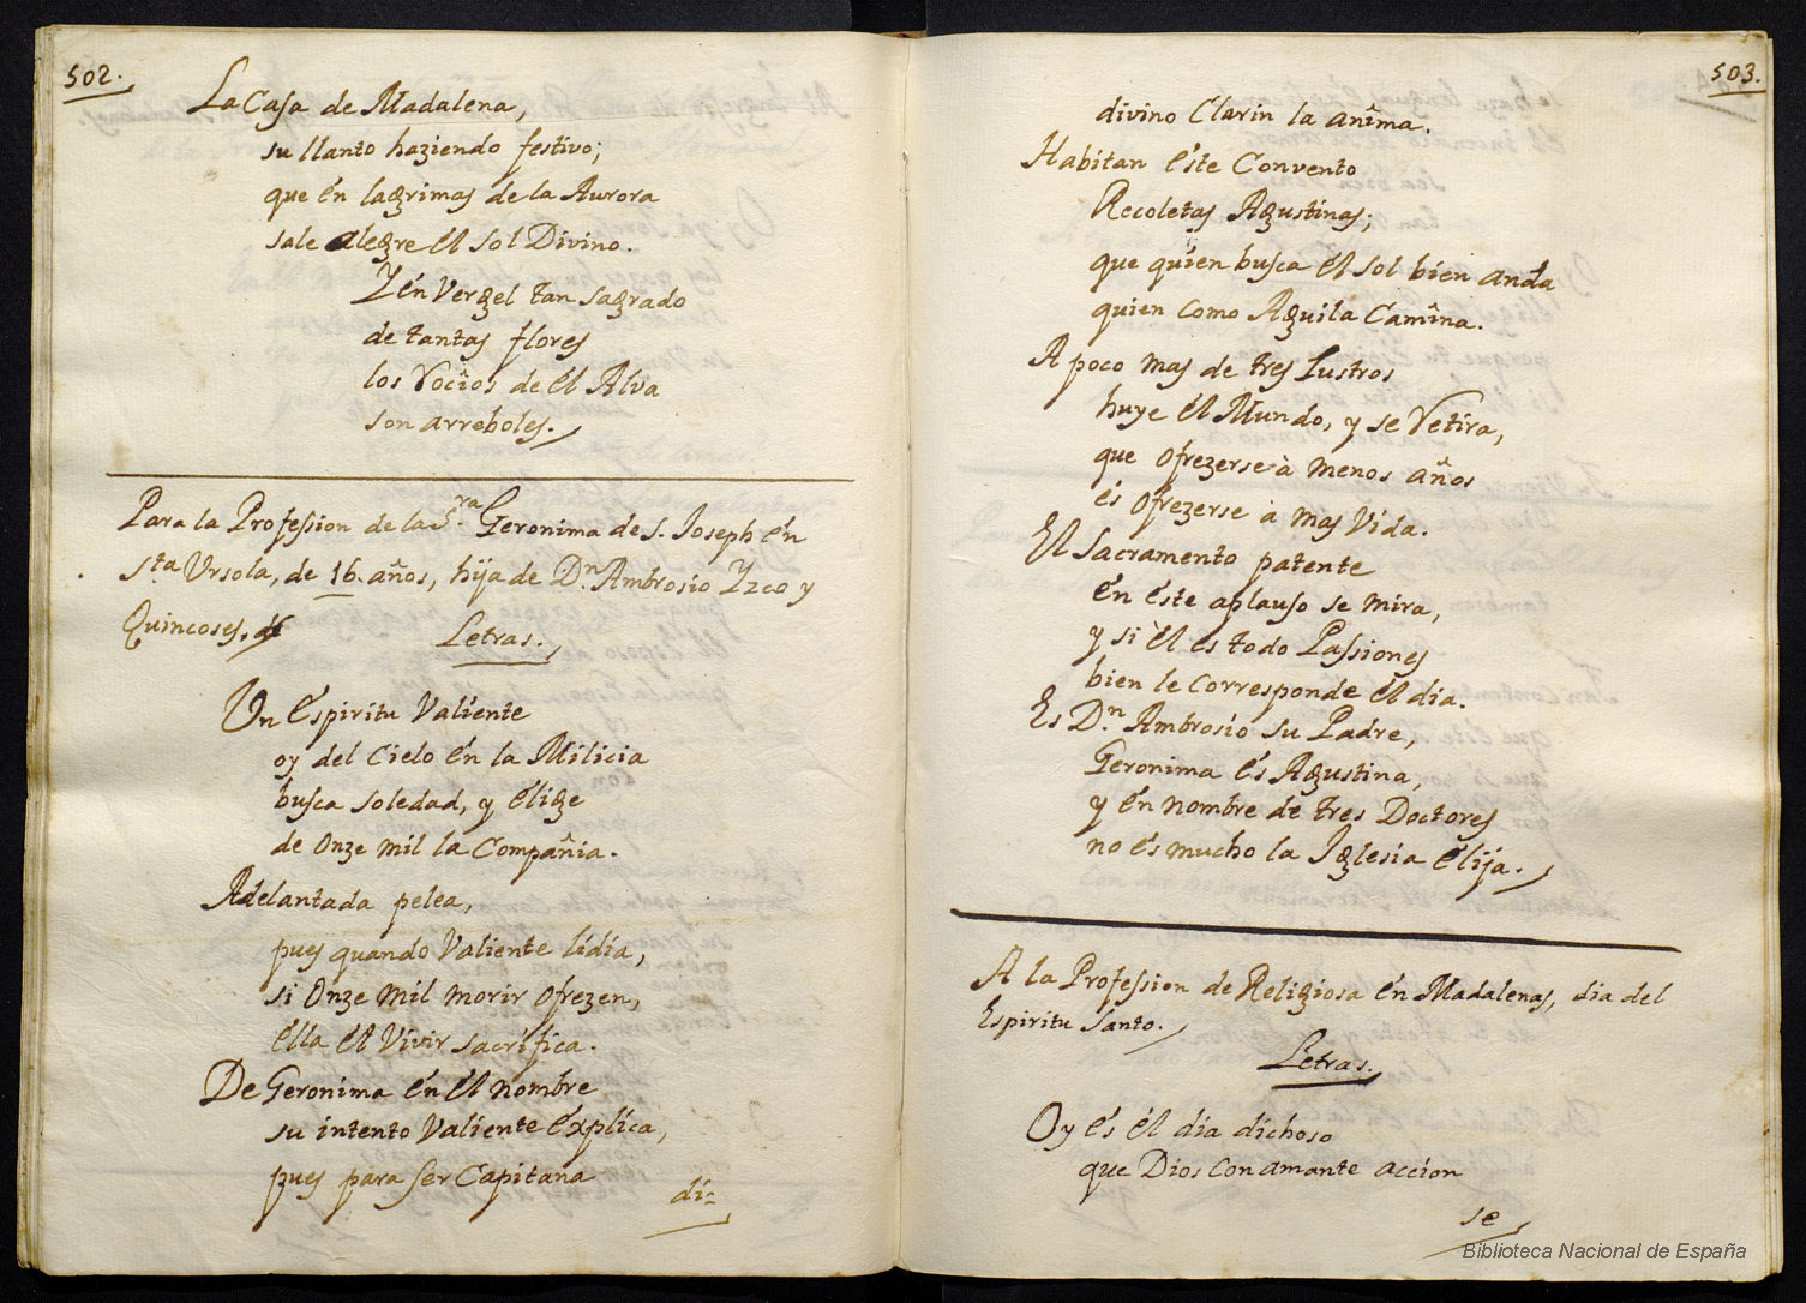 502.
La Casa de Madalena,
su llanto haziendo festivo;
que én lagrimas de la Aurora
sale alegre él Sol Divino.
Y én Vergel tan sagrado
de tantas flores
los rocios de él Alva
son arreboles.
Para la Profession de la S.ra Geronima de S. Joseph én
S.ta Ursola, de 16. años, hija de D.n Ambrosio Yzco y
Quincoses.
Letras.
Un éspiritu Valiente
oy del Cielo én la Milicia
busca soledad, y élige
de Onze mil la Compañia.
Adelantada pelea,
pues quando Valiente lidia,
si Onze mil morir ofrezen,
élla él Vivir sacrifica.
De Geronima én él nombre
su intento Valiente éxplica,
pues para ser Capitana
di=
503.
divino Clarin la anima.
Habitan éste Convento
Recoletas Agustinas;
que quien busca él Sol bien anda
quien como Aguila Camina.
A poco mas de tres Lustros
huye él Mundo, y se retira,
que ofrezerse à menos años
és ofrezerse à mas Vida.
El Sacramento patente
én éste aplauso se mira,
y si él es todo Passiones
bien le corresponde él dia.
Es D.n Ambrosio su Padre,
Geronima és Agustina,
y én nombre de tres Doctores
no és mucho la Iglesia élija.
A la Profession de Religiosa én Madalenas, dia del
Espiritu Santo.
Letras.
Oy és él dia dichoso
que Dios con amante accion
se
Biblioteca Nacional de España